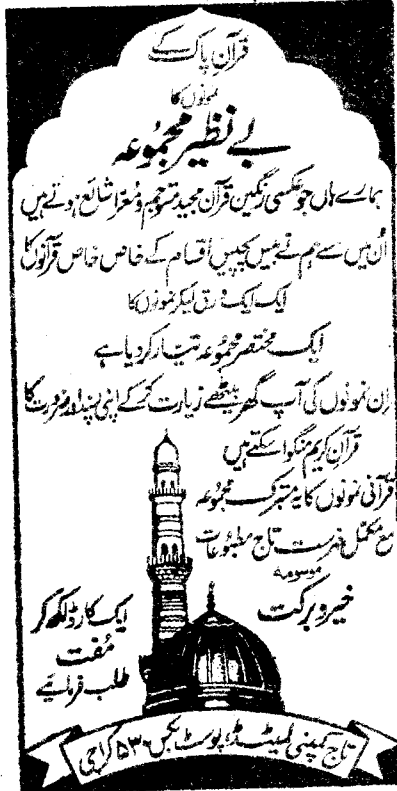 قرآنِ پاک کے
نمونوں کا
بے نظیر مجموعہ
ہمارے ہاں جو عکسی رنگین قرآن مجید مترجم و مُعرّا شائع ہوتے ہیں
اُن میں سے ہم نے بیس پچیس اقسام کے خاص خاص قرآنوں کا
ایک ایک ورق لیکر نمونوں کا
ایک مختصر مجموعہ تیار کر دیا ہے
اِن نمونوں کی آپ گھر بیٹھے زیارت کر کے اپنی پسند اور ضرورت کا
قرآن کریم منگوا سکتے ہیں
قرآنی نمونوں کا یہ متبرک مجموعہ
مع مکمّل فہرست تاج مطبوعات
موسومہ
خیر و برکت
ایک کارڈ لکھ کر
مُفت
طلب فرمائیے
تاج کمپنی لمیٹڈ، پوسٹ بکس ۵۳۰ کراچی